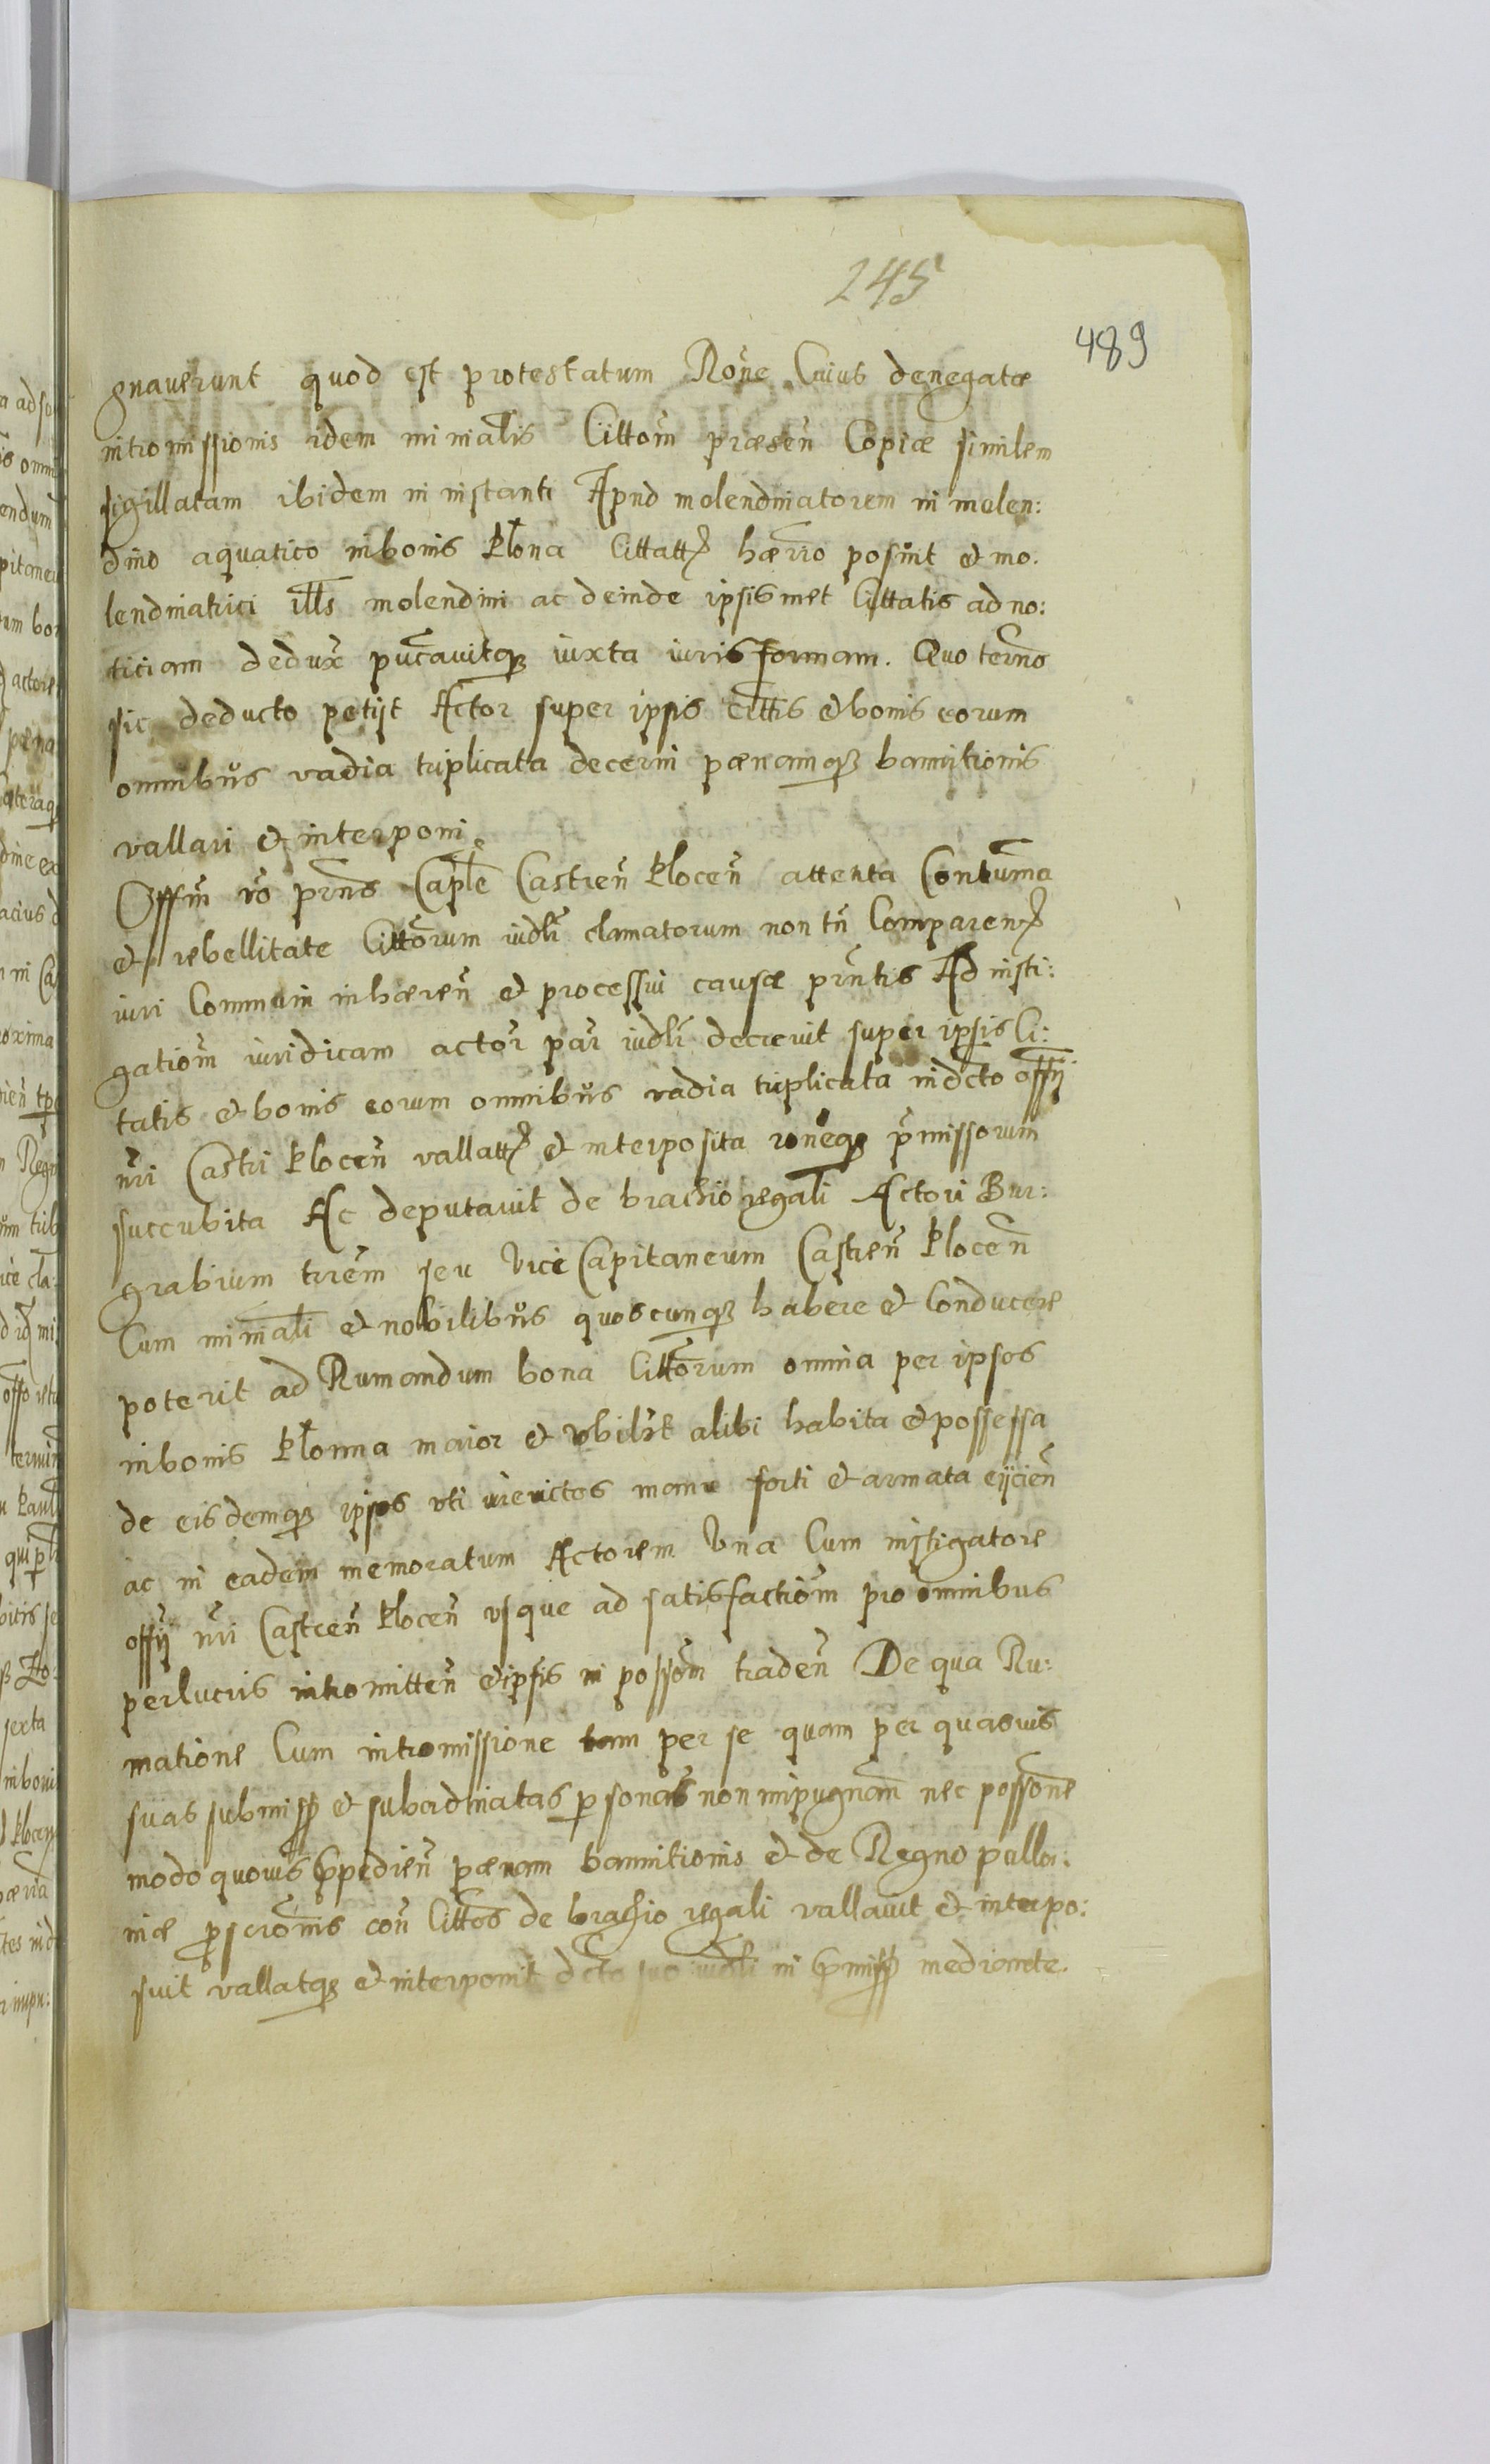 245
489
gnauerunt quod est protestatum Rone Cuius denegatæ
intromissionis idem minialis Cittom præsen Copiæ similem
sigillatam ibidem in instanti Apud molendinatorem in molen:
dino aquatico in bonis Płona hærrio posuit et mo.
lendinatrici illis molendini ac deinde ipsismet Cittatis ad no:
ticiam dedux iuxta iuris formam. Quo termo
sic deducto petijt Actor super ipsis cittis et bonis eorum
omnibus vadia triplicata decerni pænamq bannitionis
vallari et interponi
Offm vo prns Caple Castren Plocen attenta Contuma
et rebellitate Cittorum iudlr clamatorum non tn Comparen
iuri Communi inhæren et processui causæ prntis Ad insti:
gatiom iuridicam actor par iudlr decrevit super ipsis Ci:
tatis et bonis eorum omnibus vadia triplicata in dcto offij
nri Castri Plocen vallatt et interposita roneq pmissorum
succubita Ac deputauit de brachio regali Actori Bur:
grabium trrem seu Vice Capitaneum Castren Plocen
Cum miniali et nobilibus quoscunq habere et Conducere
poterit ad Rumandum bona Cittorum omnia per ipsos
in bonis Płonna maior et vbilibt alibi habita et possessa
de eisdemq ipsos vti iurevictos manu forti et armata eijcien
ac in eadem memoratum Actorem Vna Cum instigatore
offij nri Castren Plocen vsque ad satisfactiom pro omnibus
perlucris intromitten et ipsis in possom traden De qua Ru:
matione Cum intromissione tam per se quam per quasuis
suas submiss et subordinatas psonas non impugnan nec possone
modo quouis ppedien pænam bannitionis et de Regno pollo:
niæ pscronis con Cittos de brachio regali vallauit et interpo:
suit vallatq et interponit dcto suo iudli in pmiss mediante.